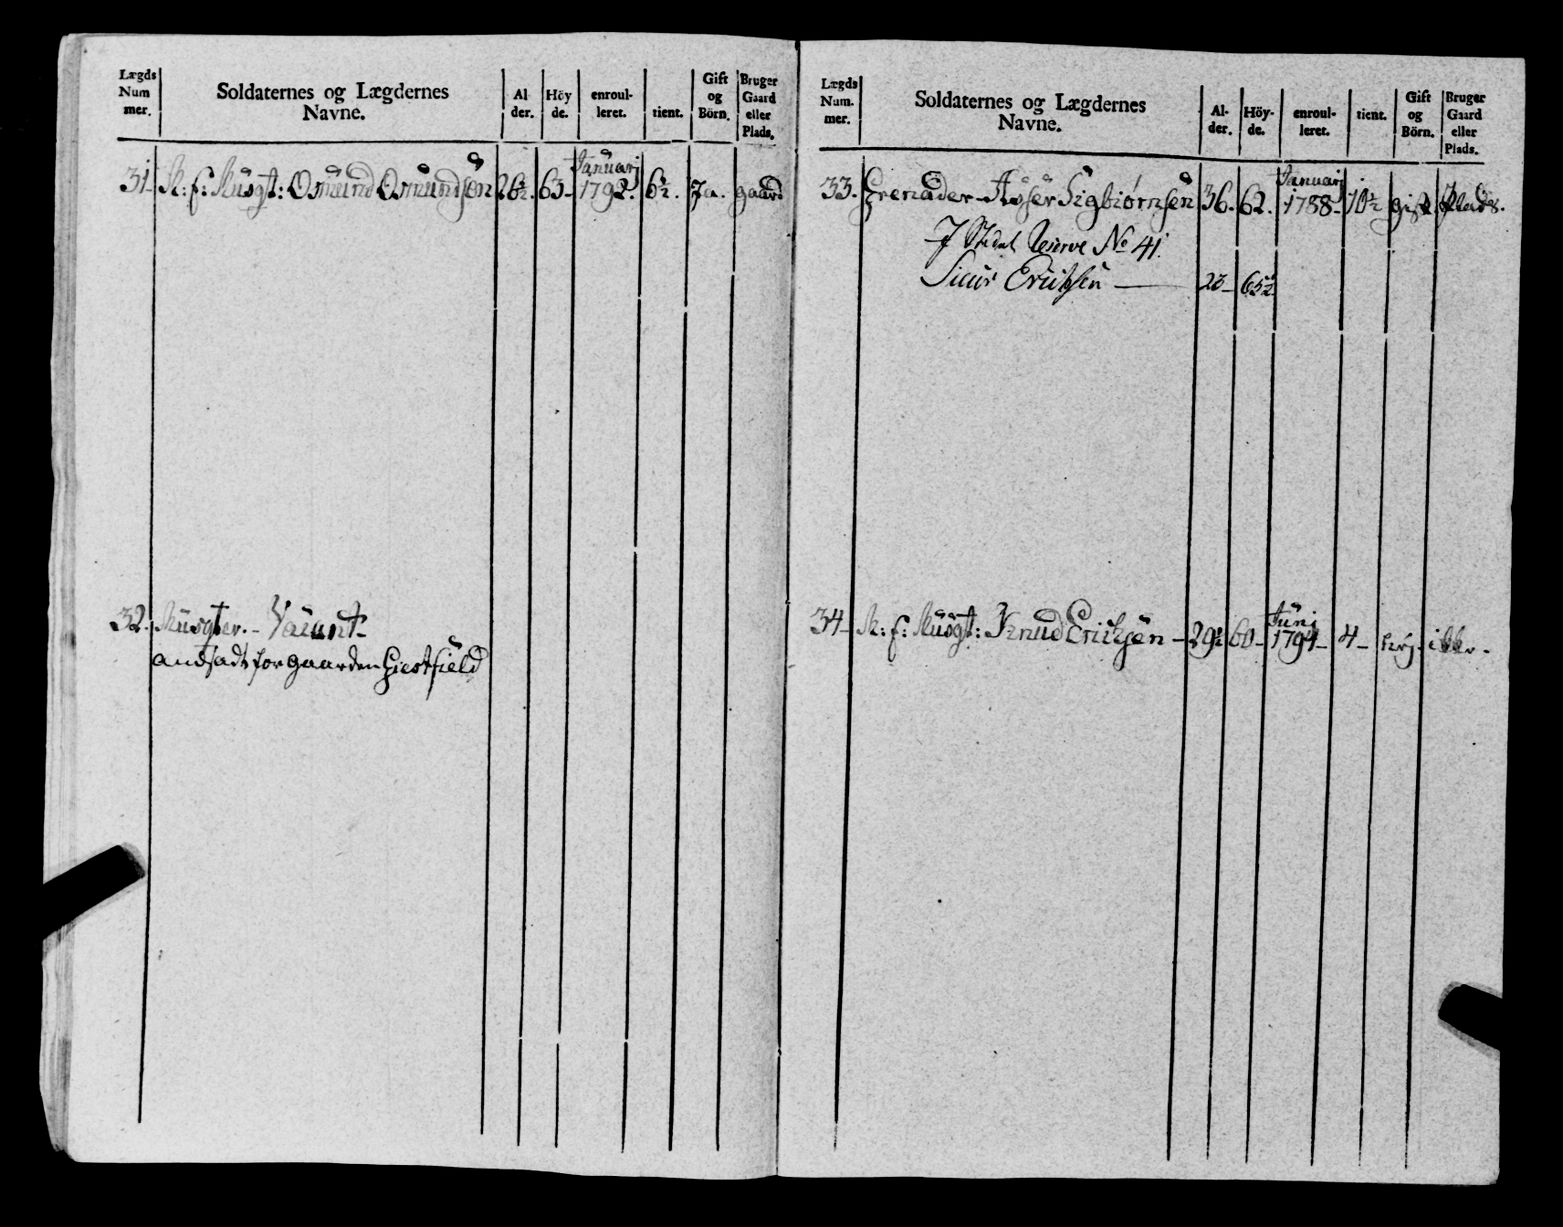 Lægds Num mer. Soldaternes og Lægdernes Navne. Al der. Höy de. enroul- leret. tient. Gift og Börn. Bruger Gaard eller Plads.
31. Osmund Osmundsen 26½. 63- Januarj 1792. 6½. Ja. gaard
32. Musqter.- Vacant-
andsadt for gaarden Giestfield
Lægds Num. mer. Soldaternes og Lægdernes Navne. Al- der. Höy- de. enroul- leret. tient. Gift og Börn. Bruger Gaard eller Plads.
33. Grenader Sigbiørnsen 36. 62. Januarj 1788- 10½ gift. Plads.
Reserve No 41.
Ericksen — 23- 65½
34- Knud Erichsen - 29½ 60- Junj 1794- 4- ikke.